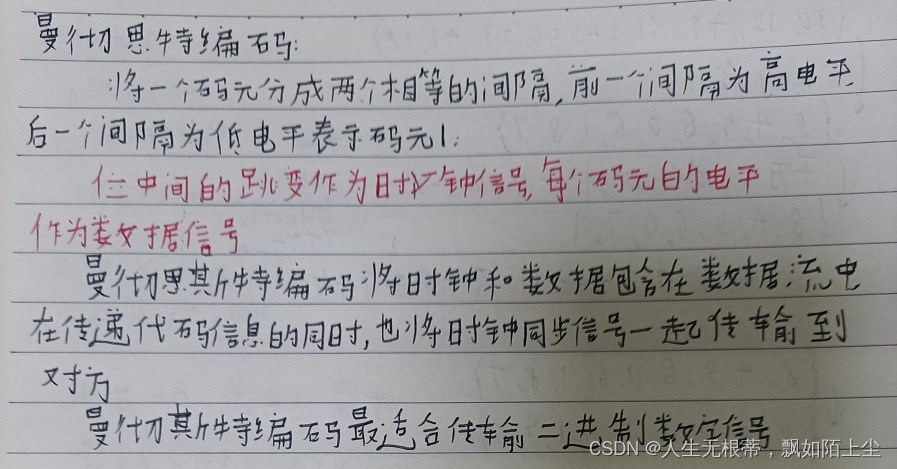 曼彻思特编码:
将一个码元分成两个相等的间隔,前一个间隔为高电平
后一个间隔为低电平表示码元1:
位中间的跳变作为时钟信号,每个码元的电平
作为数据信号
曼彻思斯特编码将时钟和数据包含在数据流中
在传递代码信息的同时,也将时钟同步信号一起传输到
对方
曼彻斯特编码最适合传输二进制数字信号
CSDN @人生无根蒂,飘如陌上尘